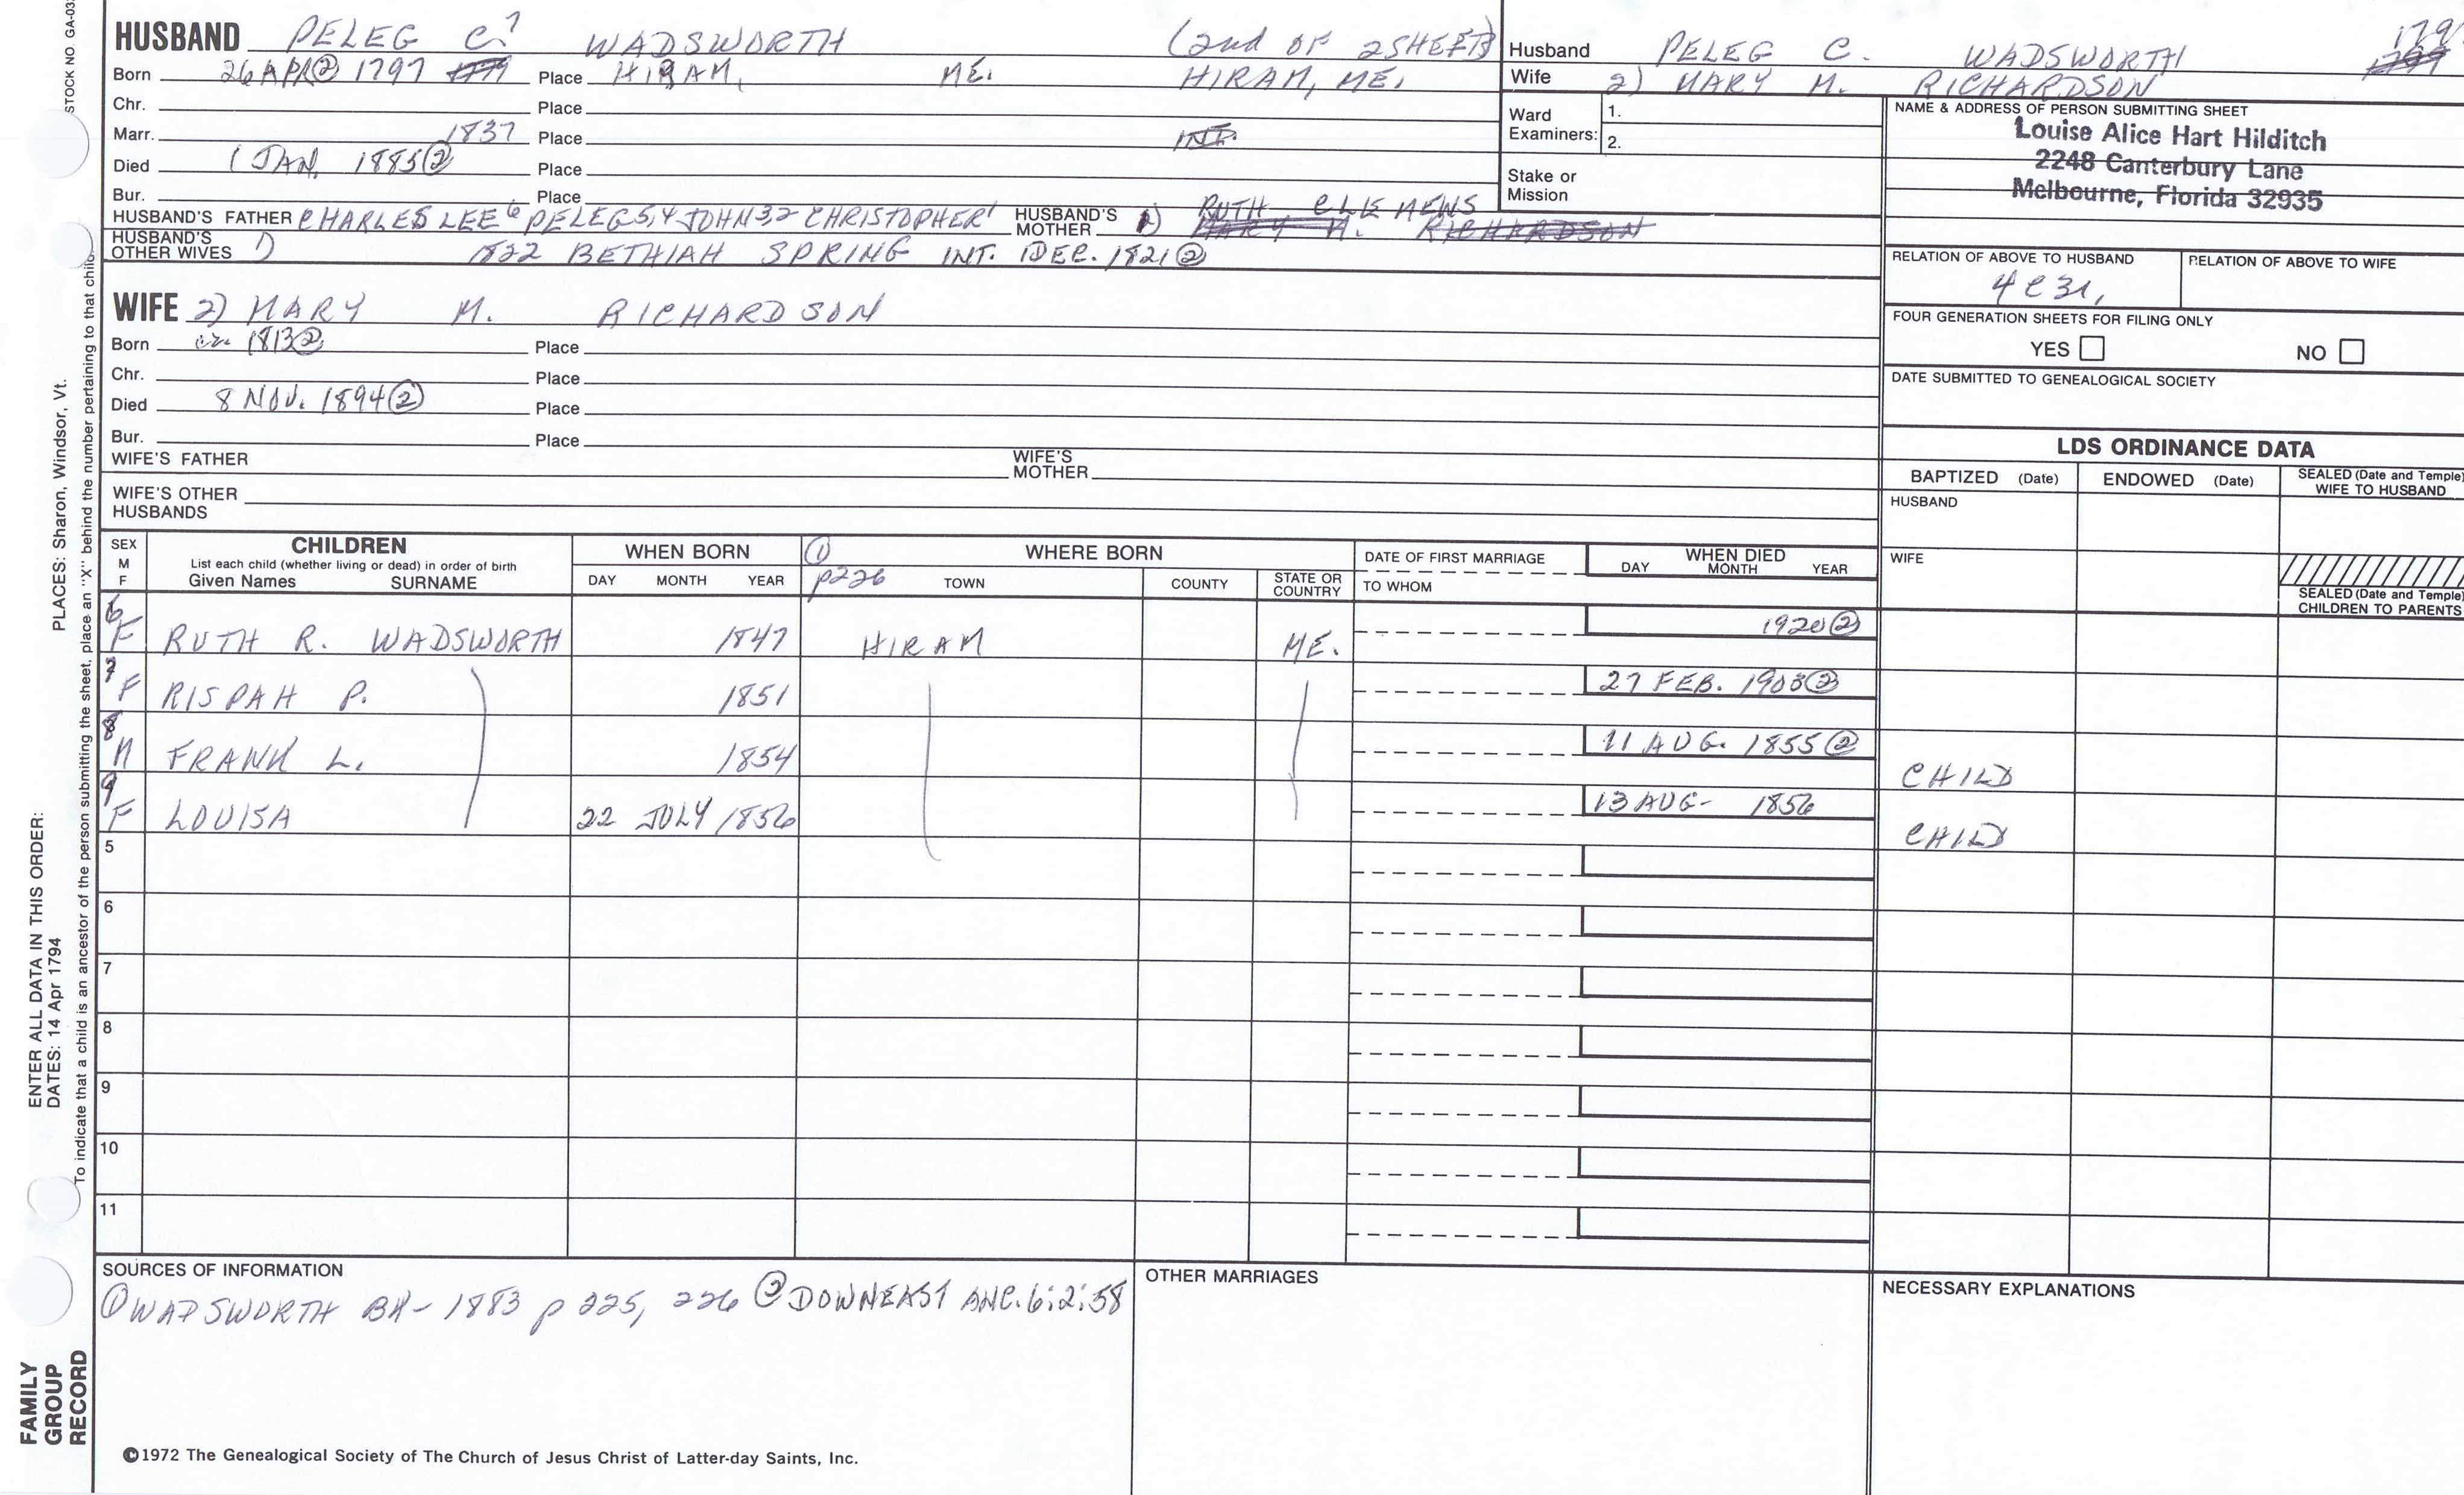 STOCK NO. GA-03
HUSBAND PELEG C.7 WADSWORTH (2nd OF 2 SHEETS)
Born 26 APR② 1797 Place HIRAM, ME. HIRAM, ME.
Chr. Place
Marr. 1837 Place INT.
Died 1 JAN. 1885② Place
Bur. Place
HUSBAND'S FATHER CHARLES LEE6 PELEG5,4 JOHN3,2 CHRISTOPHER1 HUSBAND'S MOTHER RUTH CLEMENS
MARY M. RICHARDSON
HUSBAND'S OTHER WIVES 1) 1822 BETHIAH SPRING INT. DEC. 1821②
WIFE 2) MARY M. RICHARDSON
Born 1813② Place
Chr. Place
Died 8 NOV. 1894② Place
Bur. Place
WIFE'S FATHER WIFE'S MOTHER
WIFE'S OTHER HUSBANDS
Husband PELEG C. WADSWORTH 179
Wife 2) MARY M. RICHARDSON
Ward Examiners: 1.
2.
Stake or Mission
NAME & ADDRESS OF PERSON SUBMITTING SHEET
Louise Alice Hart Hilditch
2248 Canterbury Lane
Melbourne, Florida 32935
RELATION OF ABOVE TO HUSBAND RELATION OF ABOVE TO WIFE
FOUR GENERATION SHEETS FOR FILING ONLY
YES NO
DATE SUBMITTED TO GENEALOGICAL SOCIETY
LDS ORDINANCE DATA
BAPTIZED (Date) ENDOWED (Date) SEALED (Date and Temple) WIFE TO HUSBAND
HUSBAND
WIFE
SEALED (Date and Temple) CHILDREN TO PARENTS
SEX M F
CHILDREN
List each child (whether living or dead) in order of birth
Given Names SURNAME
WHEN BORN
DAY MONTH YEAR
① p226
WHERE BORN
TOWN COUNTY STATE OR COUNTRY
DATE OF FIRST MARRIAGE
TO WHOM
WHEN DIED
DAY MONTH YEAR
6 F RUTH R. WADSWORTH 1847 HIRAM ME. 1920②
7 F RISPAH P. 1851 27 FEB. 1903②
8 M FRANK L. 1854 11 AUG. 1855② CHILD
9 F LOUISA 22 JULY 1856 13 AUG- 1856 CHILD
5
6
7
8
9
10
11
SOURCES OF INFORMATION
① WADSWORTH BH- 1883 p 225, 226 ② DOWNEAST ANC. 6:2:58
OTHER MARRIAGES
NECESSARY EXPLANATIONS
©1972 The Genealogical Society of The Church of Jesus Christ of Latter-day Saints, Inc.
FAMILY GROUP RECORD
ENTER ALL DATA IN THIS ORDER:
DATES: 14 Apr 1794
PLACES: Sharon, Windsor, Vt.
To indicate that a child is an ancestor of the person submitting the sheet, place an "X" behind the number pertaining to that child.